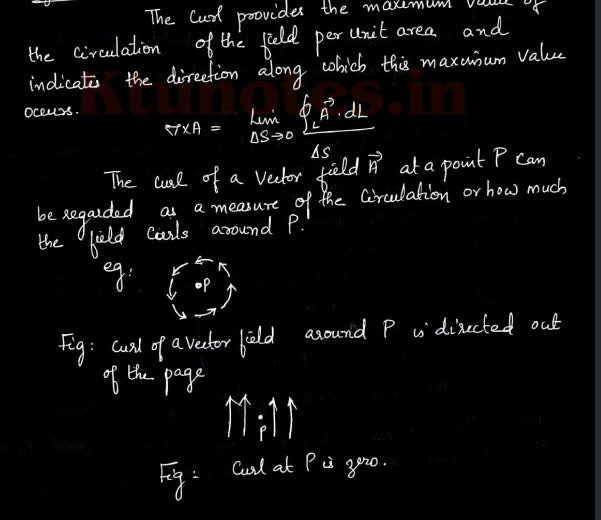 The Curl provides the maximum value of
the circulation of the field per unit area and
indicates the direction along which this maximum value
occurs.
Ktunotes.in
∇×A = Lim ΔS→0 ∮L A⃗ · dL / ΔS
The curl of a vector field A⃗ at a point P can
be regarded as a measure of the circulation or how much
the field curls around P.
eg:
P
Fig: curl of a vector field around P is directed out
of the page
P
Fig: Curl at P is zero.